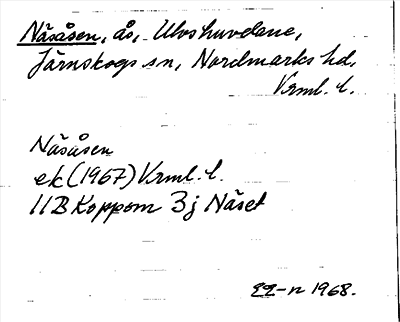 Näsåsen, ås, Ulvshuvdane,
Järnskogs sn, Nordmarks hd,
Vrml. l.
Näsåsen
ek (1967) Vrml. l.
11B Koppom 3j Näset
1968.